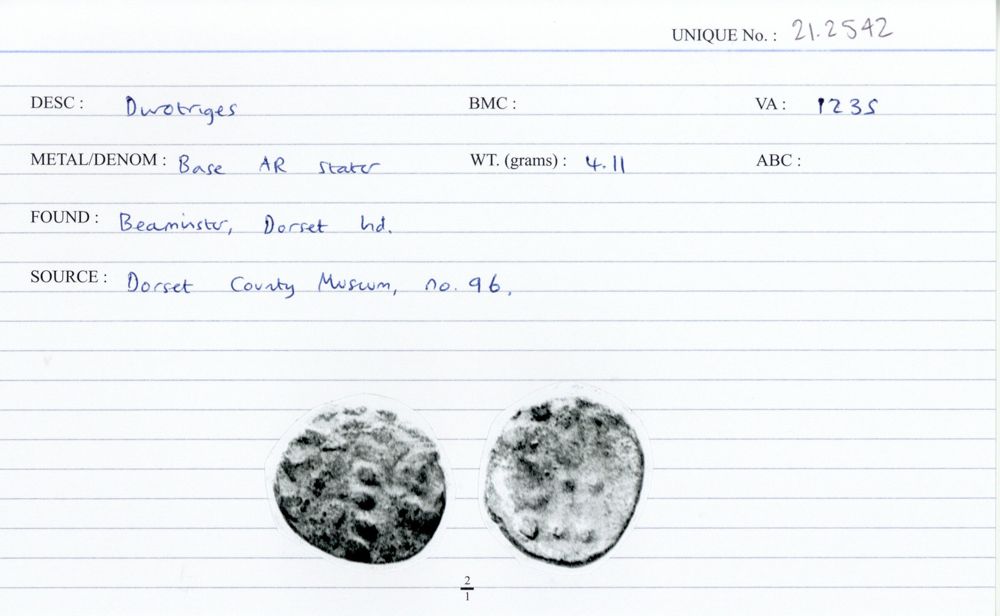 UNIQUE No. : 21.2542
DESC : Durotriges BMC : VA : 1235
METAL/DENOM : Base AR stater WT. (grams) : 4.11 ABC :
FOUND : Beaminster, Dorset hd.
SOURCE : Dorset County Museum, no. 96.
2
1